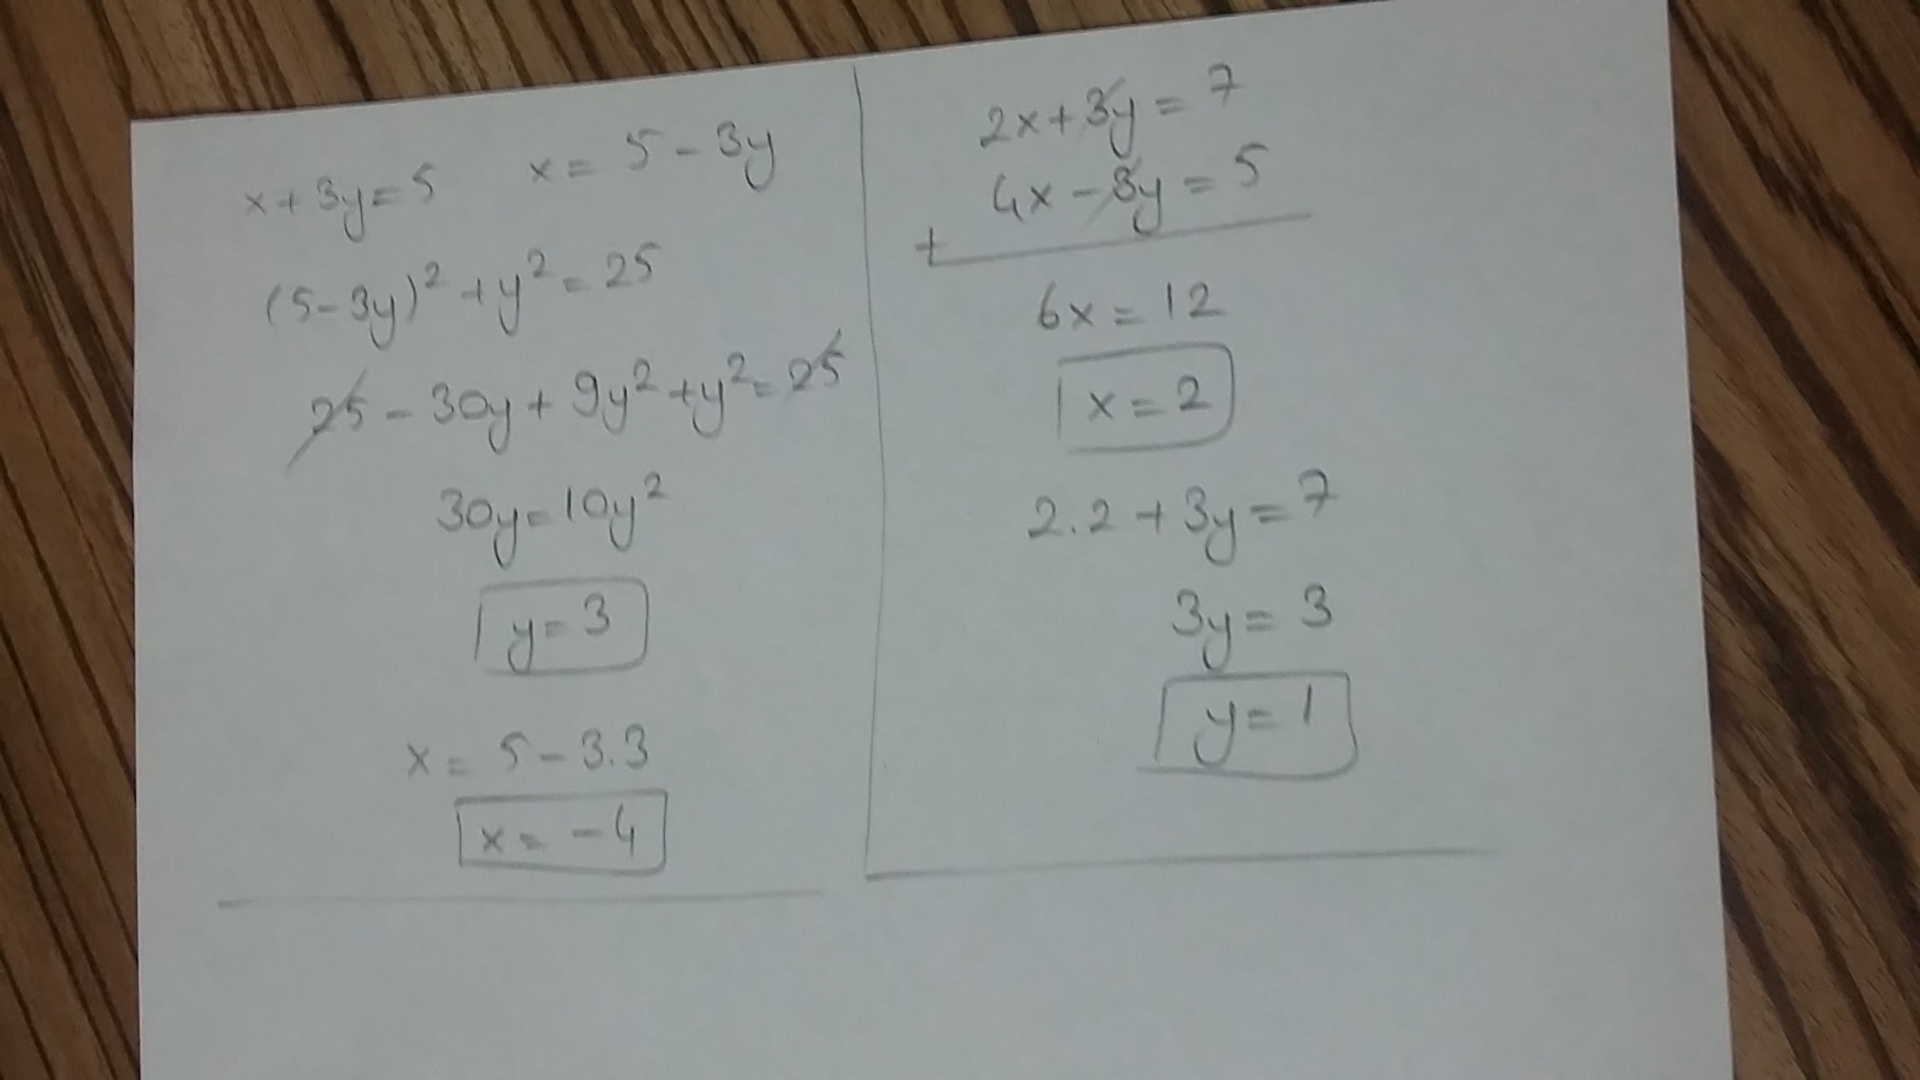 x + 3y = 5    x = 5 - 3y
(5 - 3y)² + y² = 25
25 - 30y + 9y² + y² = 25
30y = 10y²
y = 3
x = 5 - 3.3
x = -4
2x + 3y = 7
4x - 3y = 5
+
6x = 12
x = 2
2.2 + 3y = 7
3y = 3
y = 1